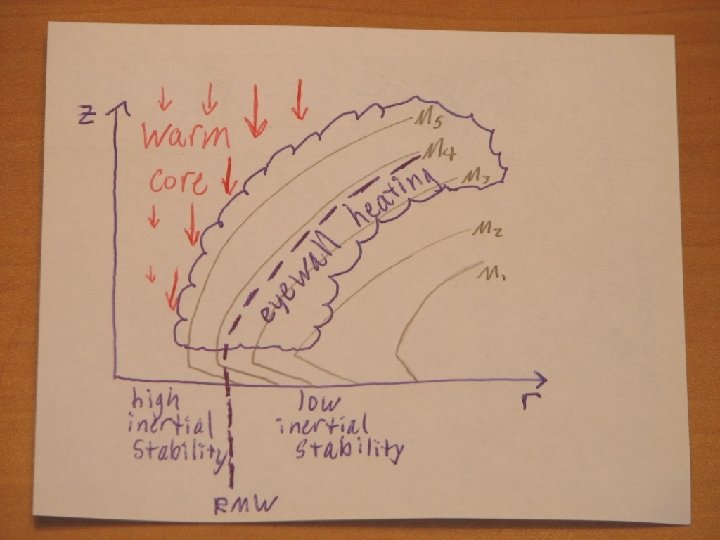 z
warm
core
M5
M4
M3
M2
M1
eyewall heating
r
high
inertial
Stability
low
inertial
Stability
RMW